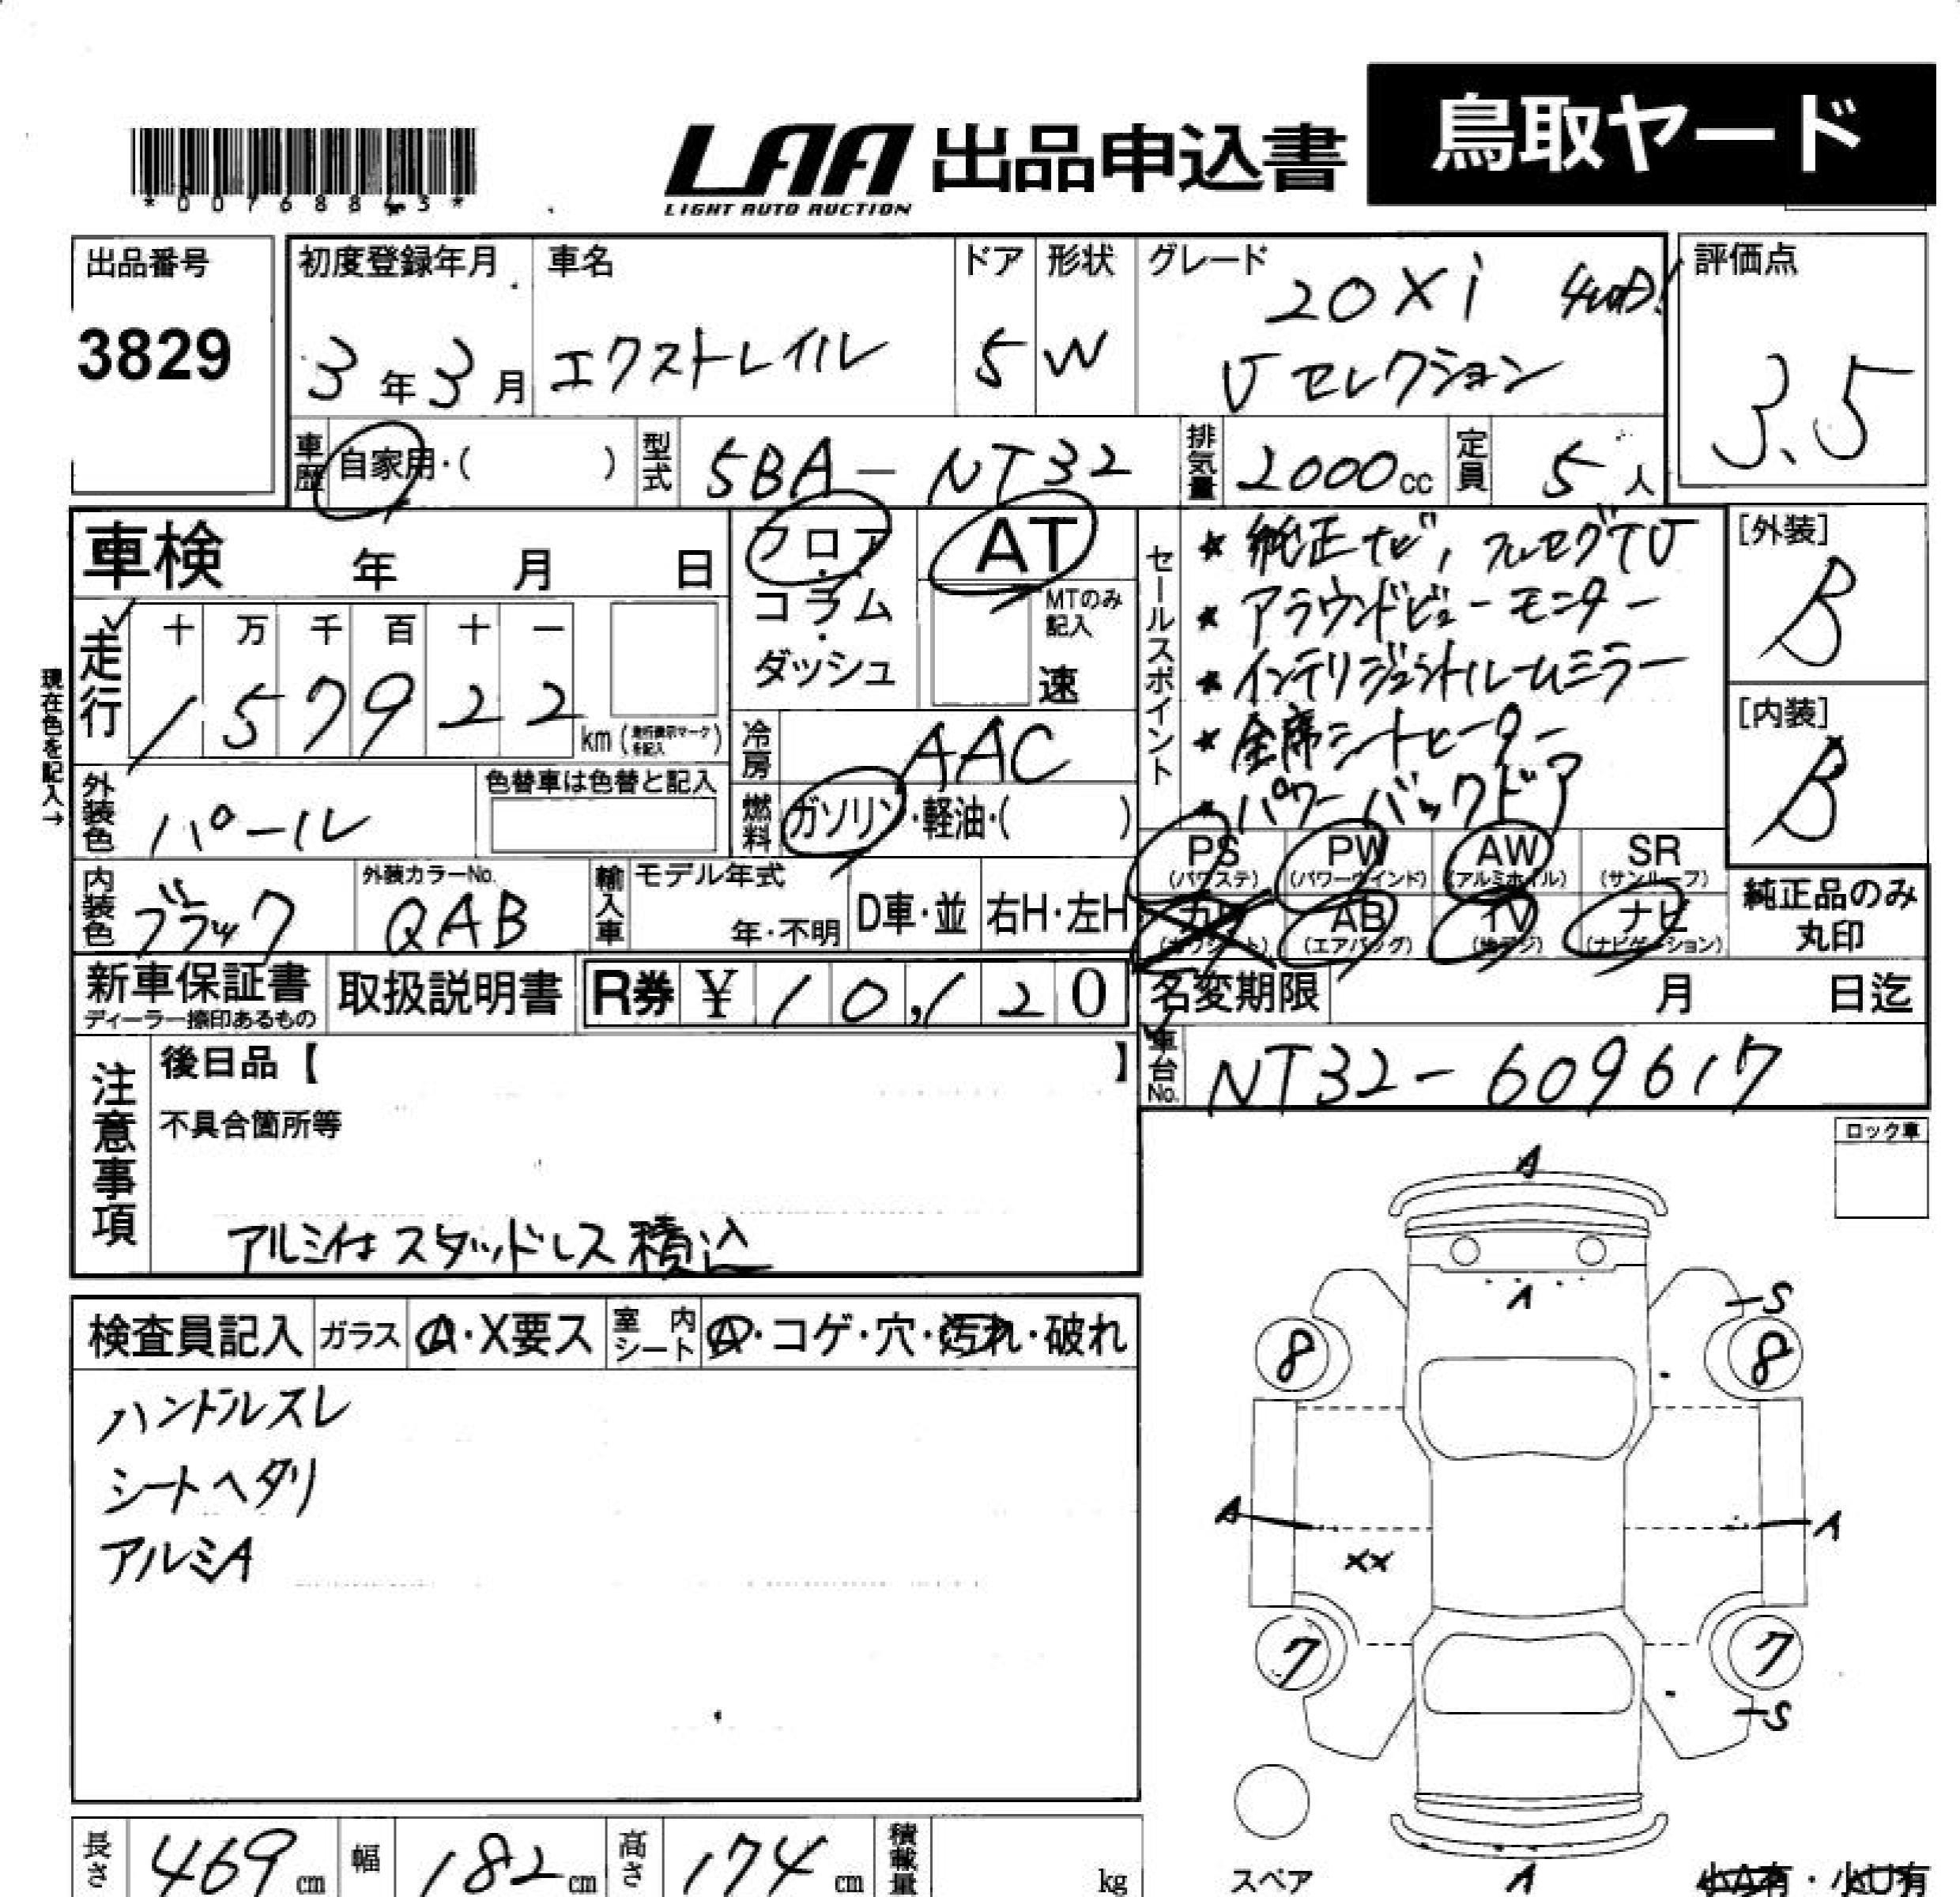 *00768843*
LAA 出品申込書 鳥取ヤード
LIGHT AUTO AUCTION
出品番号 初度登録年月 車名 ドア 形状 グレード 評価点
3829 3年3月 エクストレイル 5 W 20Xi 4WD
Vセレクション 3.5
車歴 自家用・( ) 型式 5BA-NT32 排気量 2000cc 定員 5人
車検 年 月 日 フロア・コラム・ダッシュ AT
MTのみ記入 速
セールスポイント
★ 純正ナビ, フルセグTV
★ アラウンドビューモニター
★ インテリジェントルームミラー
★ 全席シートヒーター
★ パワーバックドア
[外装] B
[内装] B
走行 十 万 千 百 十 一
157922 km (走行表示マークを記入)
現在色を記入→
冷房 AAC
外装色 パール 色替車は色替と記入
燃料 ガソリン・軽油・( )
PS (パワステ) PW (パワーウインド) AW (アルミホイル) SR (サンルーフ)
AB (エアバッグ) TV (地デジ) ナビ (ナビゲーション)
純正品のみ丸印
内装色 ブラック 外装カラーNo. QAB 輸入車 モデル年式 年・不明 D車・並 右H・左H
新車保証書 ディーラー捺印あるもの 取扱説明書 R券 ¥10,120 名変期限 月 日迄
車台No. NT32-609617
注意事項 後日品【 】
不具合箇所等
アルミ付スタッドレス積込
ロック車
検査員記入 ガラス A・X要ス 室内シート A・コゲ・穴・汚れ・破れ
ハンドルスレ
シートヘタリ
アルミA
A
A
S
8 8
A A
XX
7 7
S
スペア A
小A有・小U有
長さ 469cm 幅 182cm 高さ 174cm 積載量 kg